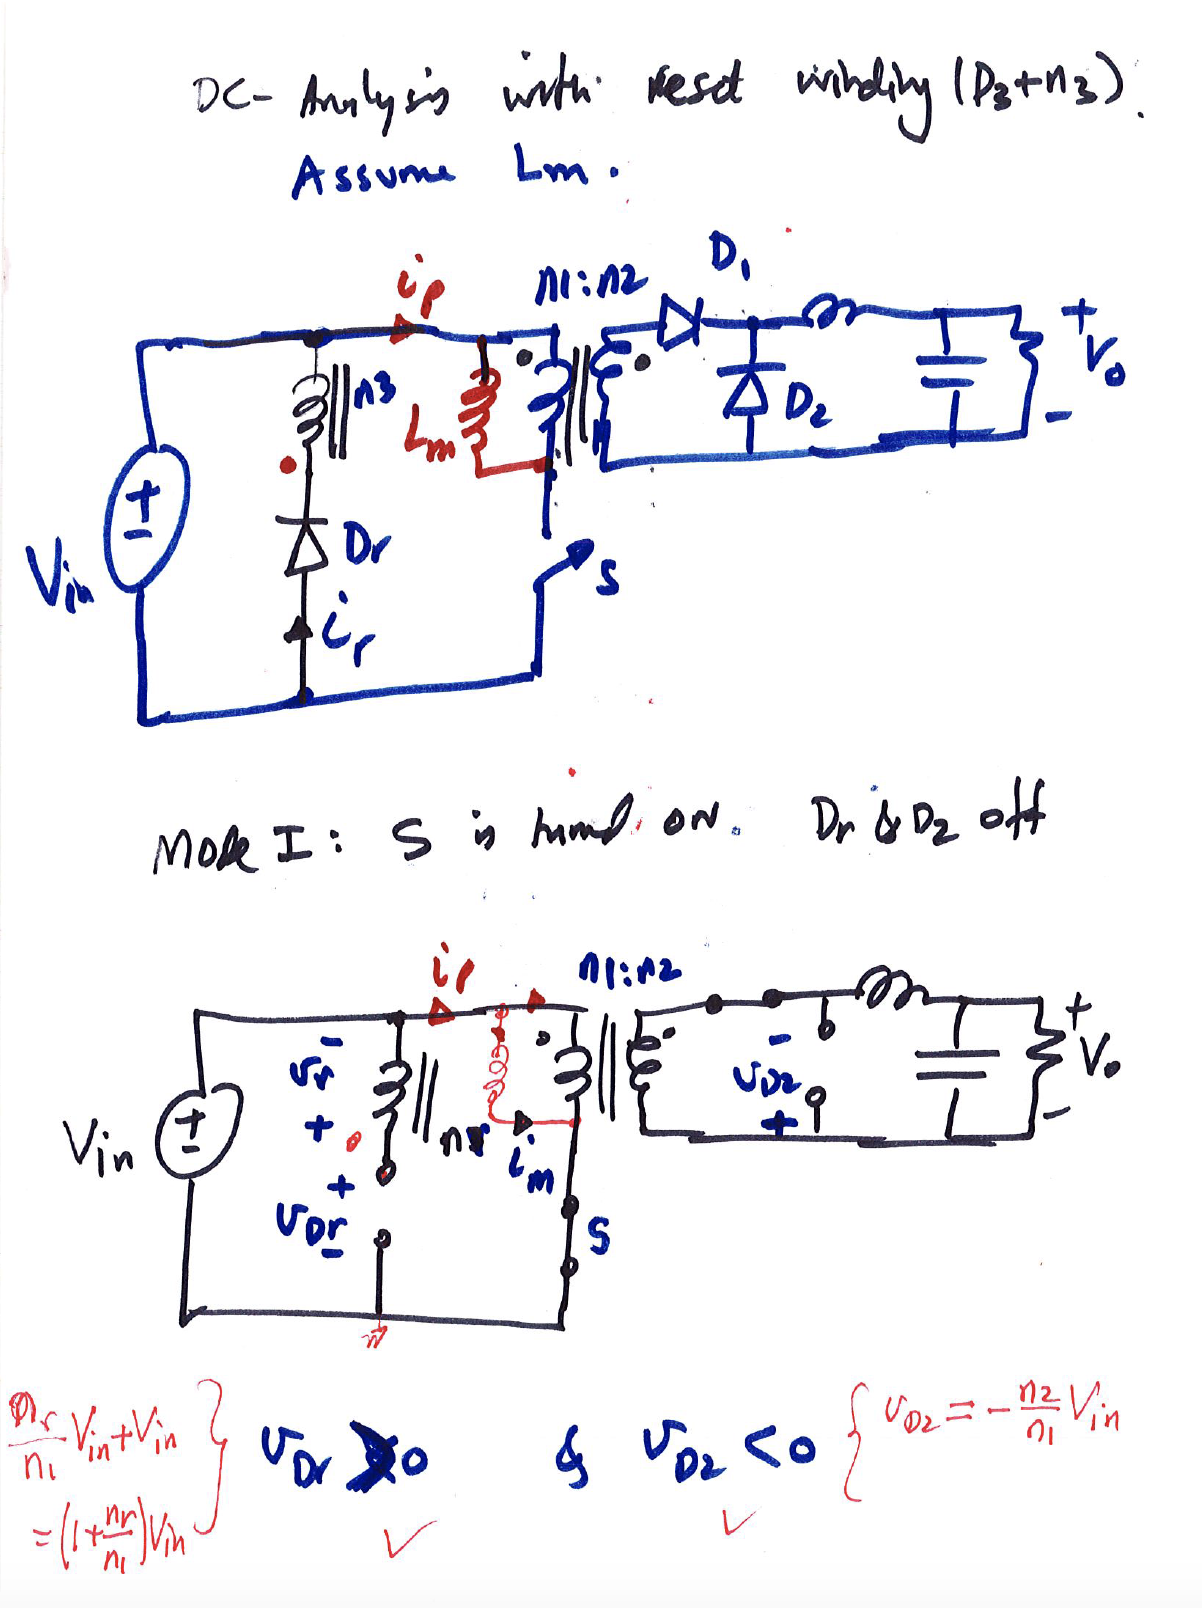 DC- Analysis with reset winding (D3+n3).
Assume Lm.
ip
n1:n2
D1
n3
Lm
D2
+
Vo
-
+
-
Vin
Dr
ir
S
Mode I: S is turned on. Dr & D2 off
ip
n1:n2
-
vr
+
nr
im
-
vD2
+
+
Vo
-
+
-
Vin
+
vDr
-
S
nr/n1 Vin+Vin
=(1+nr/n1)Vin
vDr >0 & vD2 <0
vD2 = - n2/n1 Vin